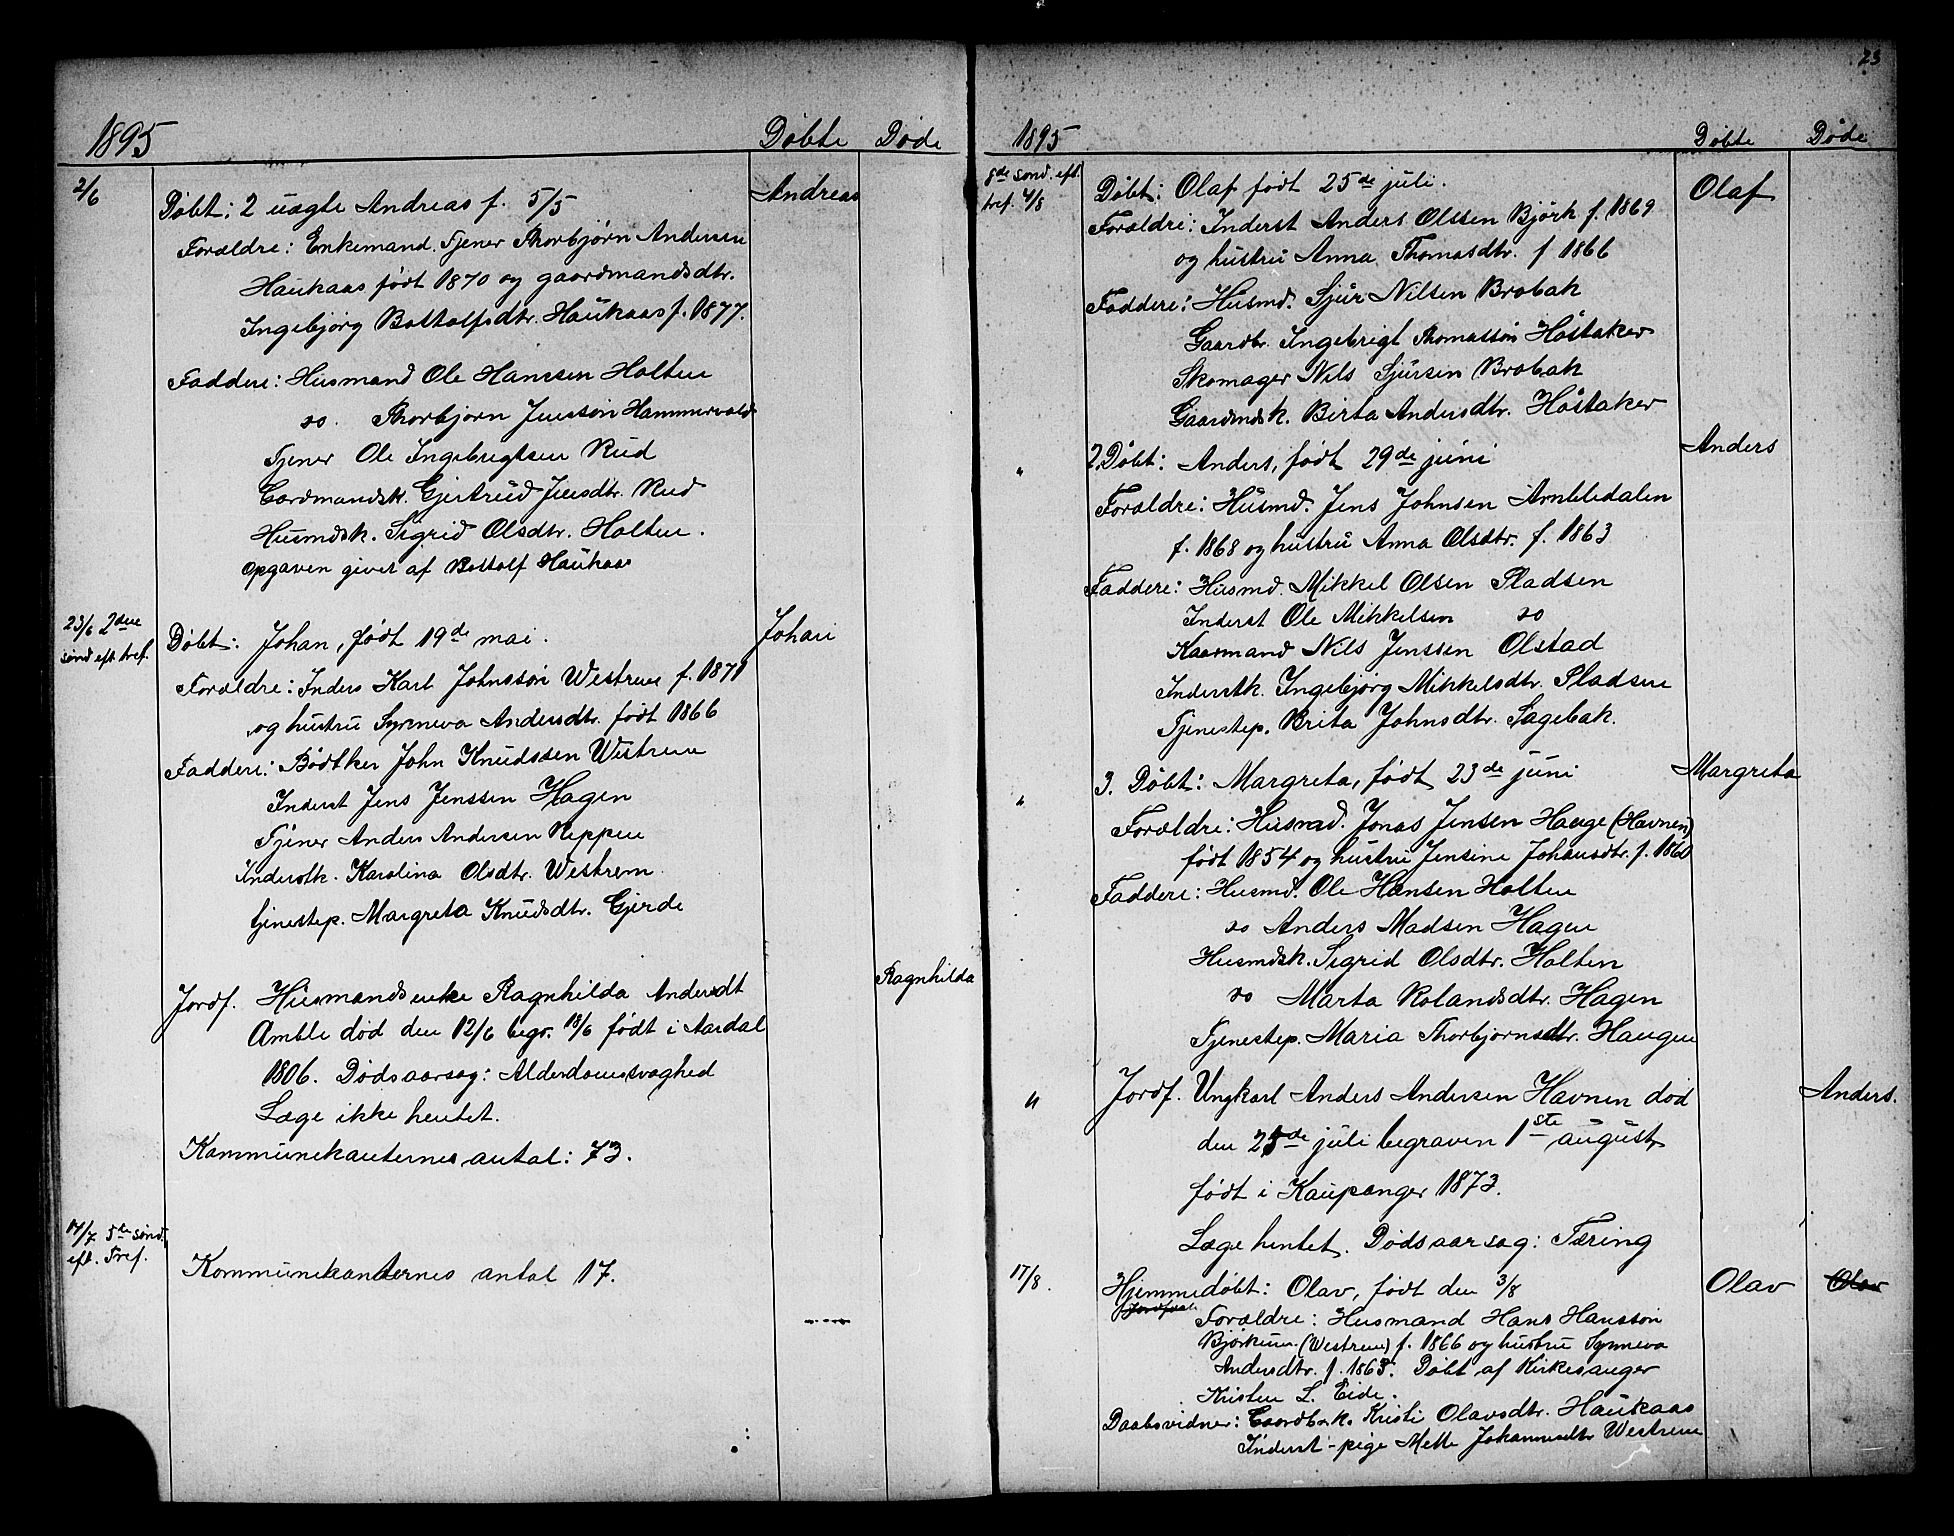 1895 Døbte Døde
2/6 Døbt: 2 uægte Andreas f. 5/5 Andreas
Forældre: Enkemand. Tjener Thorbjørn Andersen
Haukaas født 1870 og gaardmandsdtr.
Ingebjørg Bottolfsdtr. Haukaas f. 1877.
Faddere: Husmand Ole Hanssen Holten
do. Thorbjørn Jenssøn Hammervold
Tjener Ole Ingebrigtsen Rud
Gardmandsk. Gjertrud Jensdtr. Rud
Husmdsk. Sigrid Olsdtr. Holten.
Opgaven givet af Bottolf Haukaas
23/6 2den
sønd eft. tref. Døbt: Johan, født 19de mai. Johan
Forældre: Inders Karl Johnssøn Westrem f. 1871
og hustru Synneva Andersdtr. født 1866
Faddere: Bødtker John Knudssen Westrem
Inderst Jens Jenssen Hagen
Tjener Anders Andersen Reppen
Inderstk. Karolina Olsdtr. Westrem.
tjenestep. Margreta Knudsdtr. Gjerde
Jordf. Husmandsenke Ragnhilda Andersdt Ragnhilda
Amble død den 12/6 begr. 18/6 født i Aardal
1806. Dødsaarsag: Alderdomssvaghed
Læge ikke hentet.
Kommunekanternes antal: 73.
14/7. 5te sønd.
eft. Tref.
Kommunekanternes antal 17.

23
1895 Døbte Døde
8de sønd. eft.
tref. 4/8 Døbt: Olaf født 25de juli. Olaf
Forældre: Inderst Anders Olssen Bjørk f. 1869
og hustru Anna Thomasdtr. f 1866
Faddere: Husmd. Sjur Nilsen Brobak
Gaardbr. Ingebrigt Thomassøn Høstaker
Skomager Nils Sjursen Brobak
Gaardmdsk. Birta Andersdtr. Høstaker
" 2. Døbt: Anders, født 29de juni Anders
Forældre: Husmd. Jens Johnsen Ambledalen
f. 1868 og hustru Anna Olsdtr. f. 1863
Faddere: Husmd. Mikkel Olsen Pladsen
Inderst Ole Mikkelsen do
Kaarmand Nils Jenssen Olstad
Inderstk. Ingebjørg Mikkelsdtr. Pladsen
Tjenestep. Brita Johnsdtr. Sagebak.
" 3. Døbt: Margreta, født 23de juni Margreta
Forældre: Husmd. Jonas Jensen Hauge (Havnen)
født 1854 og hustru Jensine Johansdtr. f. 1860
" Faddere: Husmd. Ole Hansen Holten
do Anders Madsen Hagen
Husmdsk. Sigrid Olsdtr. Holten
do Marta Rolandsdtr. Hagen
Tjenestep. Maria Thorbjørnsdtr. Haugen
" Jordf. Ungkarl Anders Andersen Havnen død Anders.
den 25de juli begraven 1ste august,
født i Kaupanger 1873.
Læge hentet. Dødsaarsag: Tæring
17/8. Hjemmedøbt: Olav, født den 3/8 Olav Olav
Forældre: Husmand Hans Hanssøn
Bjørkum (Westrem) f. 1866 og hustru Synneva
Andersdtr. f. 1863. Døbt af Kirkesanger
Kristen L. Eide.
Daabsvidner: Gaardbr.k. Kristi Olavsdtr. Haukaas
Inderst-pige Mette Johannesdtr Westrem